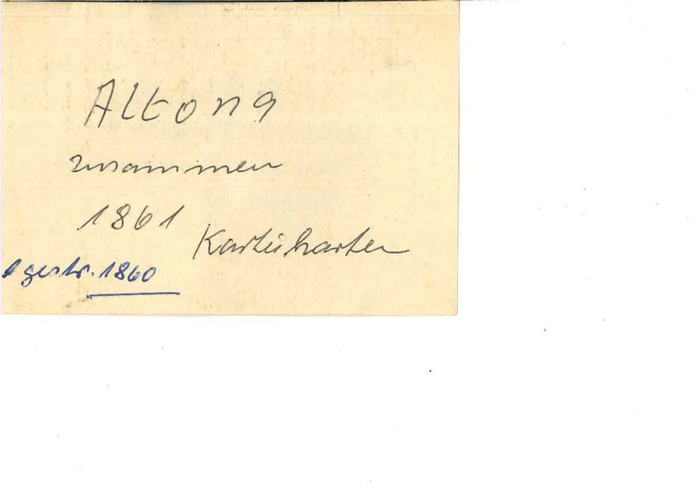 Altona
zusammen
1861
Karteikarten
1 gestr. 1860